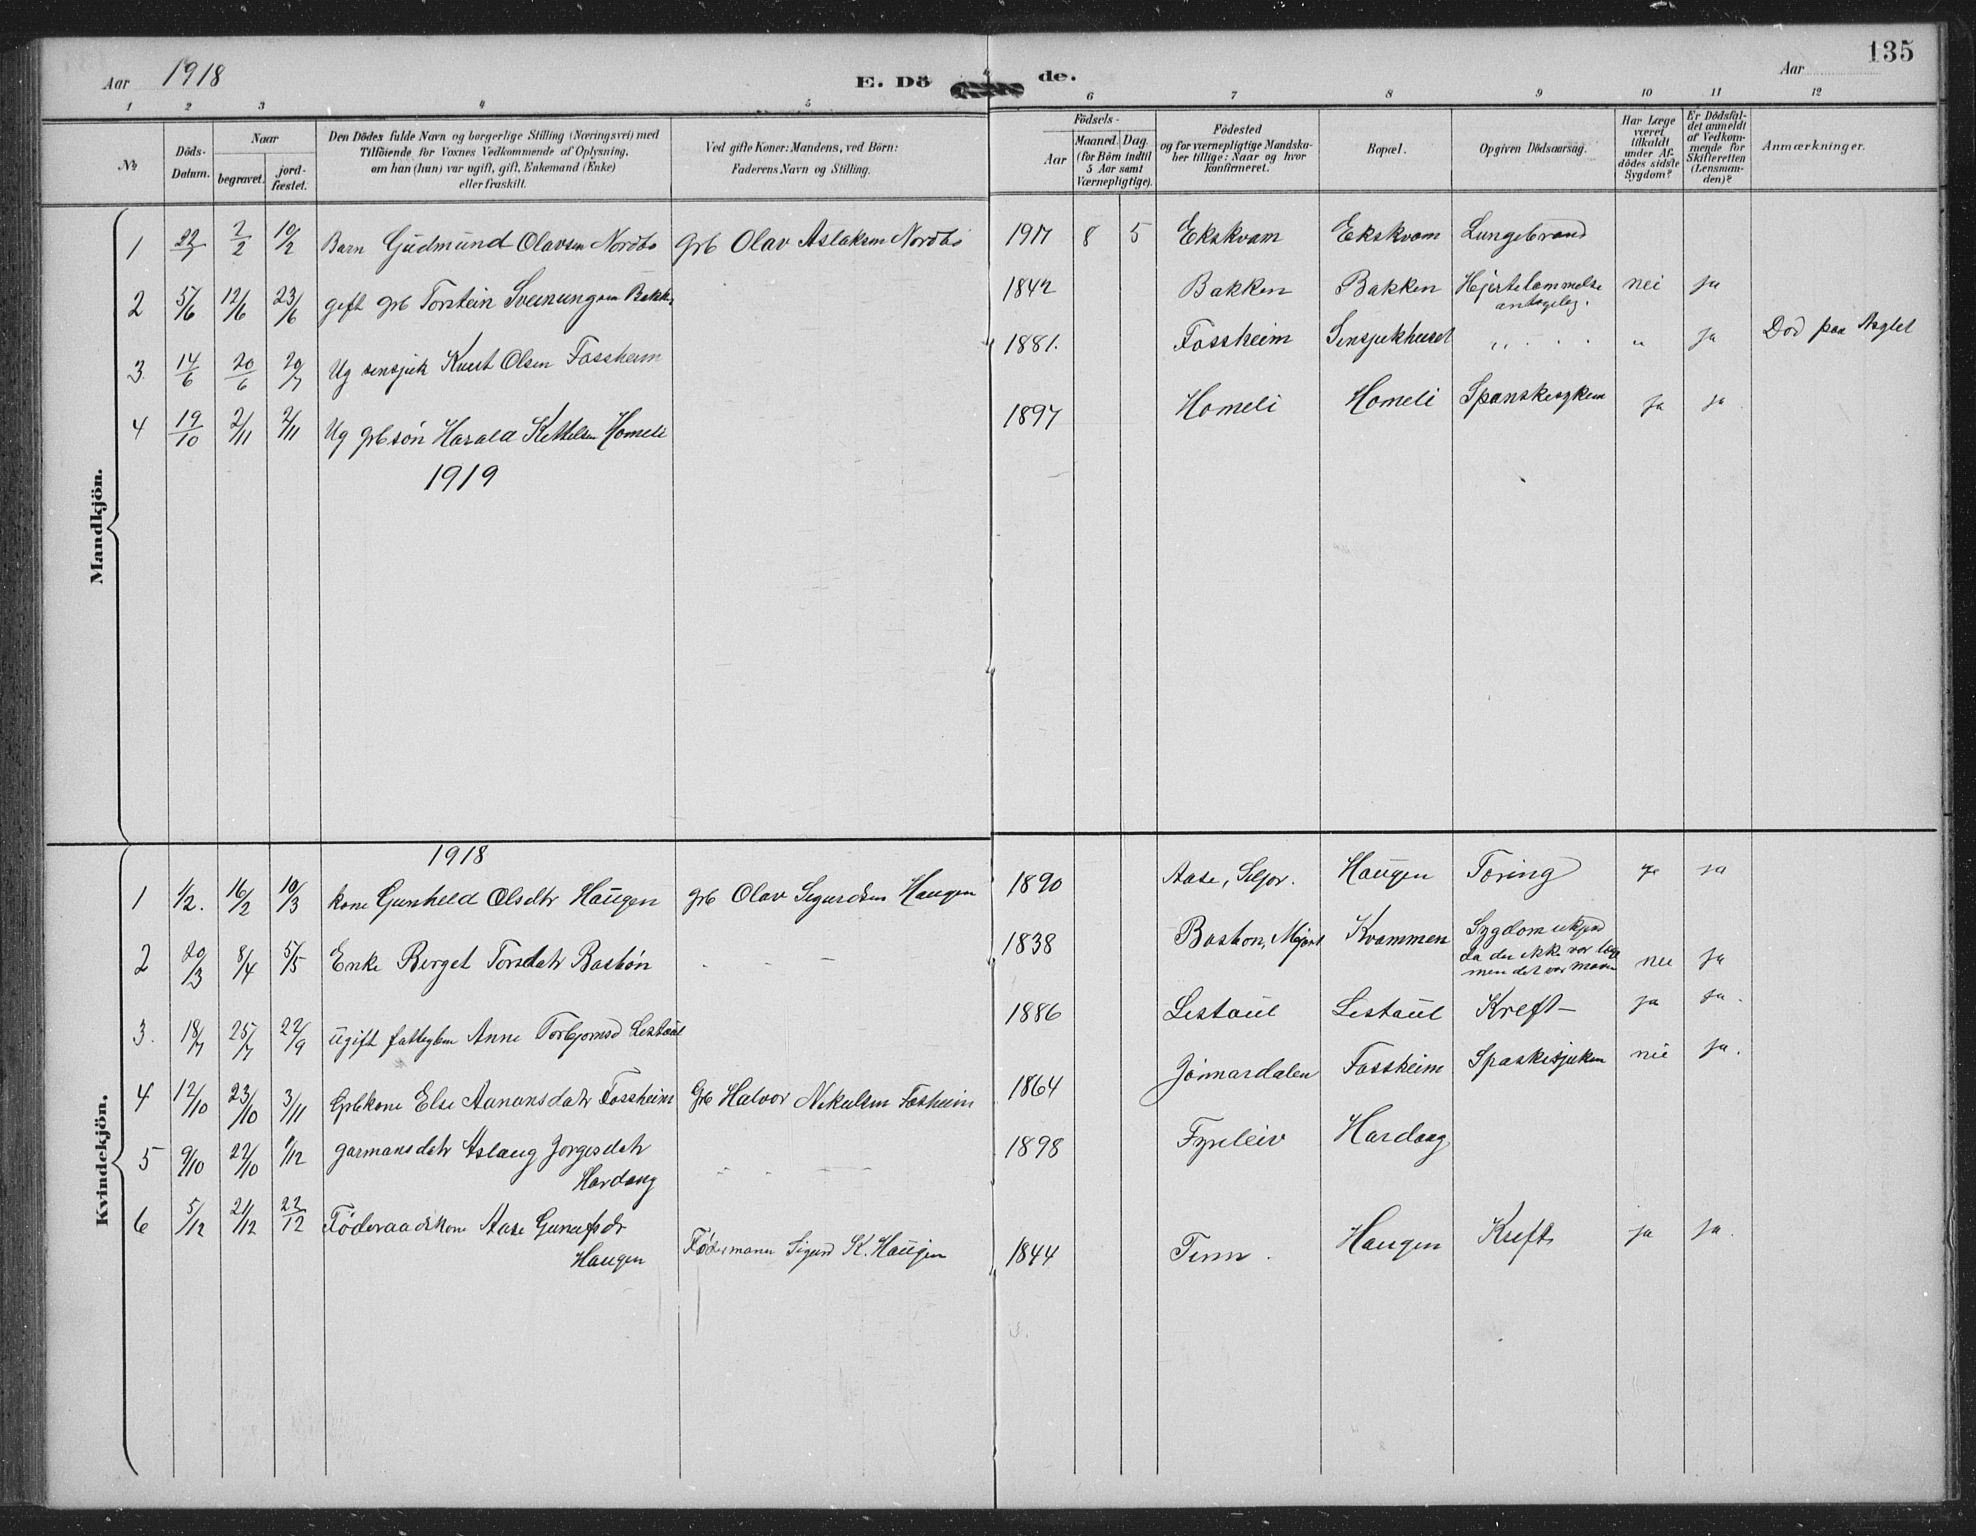 135
Aar 1918
E. Dö de.
Aar
1 2 3 4 5 6 7 8 9 10 11 12
No.
Döds-Datum.
Naar
begravet.
jord-fæstet.
Den Dödes fulde Navn og borgerlige Stilling (Næringsvei) med
Tilföiende for Voxnes Vedkommende af Oplysning,
om han (hun) var ugift, gift, Enkemand (Enke)
eller fraskilt.
Ved gifte Koner: Mandens, ved Börn:
Faderens Navn og Stilling.
Födsels-
Aar
Maaned. Dag.
(for Börn indtil
5 Aar samt
Værnepligtige).
Födested
og for værnepligtige Mandska-
ber tillige: Naar og hvor
konfirmeret.
Bopæl.
Opgiven Dödsaarsag.
Har Læge
været
tilkaldt
under Af-
dödes sidste
Sygdom?
Er Dödsfal-
det anmeldt
af Vedkom-
mende for
Skifteretten
(Lensman-
den)?
Anmærkninger.
Mandkjön.
1 22/1 2/2 10/2 Barn Gudmund Olavsen Nordbø Grb Olav Aslaksen Nordbø 1917 8 5 Ekskvam Ekskvam Lungebrand
2 5/6 12/6 23/6 gift grb Torstein Sveinungsen Bakk 1842 Bakken Bakken Hjertelammelse nei ja
antagelig.
3 14/6 20/6 20/7 Ug sinsjuk Knut Olsen Fossheim 1881. Fossheim Sinsjukhuset " " ja Død paa
4 19/10 2/11 2/11 Ug grbsøn Harald Kittelsen Homeli 1897 Homeli Homeli Spanskesyken ja ja
1919
Kvindekjön.
1918
1 1/2. 16/2 10/3 kone Gunhild Olsdtr Haugen grb Olav Sigurdsen Haugen 1890 Aase, Seljor. Haugen Tæring ja ja
2 20/3 8/4 5/5 Enke Berget Torsdatr Bastøn - - - 1838 Bastøn, Kvammen Sygdom ukjend
da der ikke var læge
men det var maven nei ja
3. 18/7 25/7 22/9 ugift fattiglem Anne Torbjørnsd Listaul 1886 Listaul Listaul Kreft ja ja.
4 12/10 23/10 3/11 Grbkone Else Aanonsdatr Fossheim Grb Halvor Nikulsen Fosheim 1864 Jønnardalen Fossheim Spaskesjuken nei ja.
5 9/10 22/10 1/12 garmansdatr Aslaug Jorgesdatr 1898 Fyrileiv Hardang
Hardang
6 5/12 21/12 22/12 Føderaadskone Aase
Haugen Sigurd K. Haugen 1844 Tinn. Haugen Kreft ja ja.